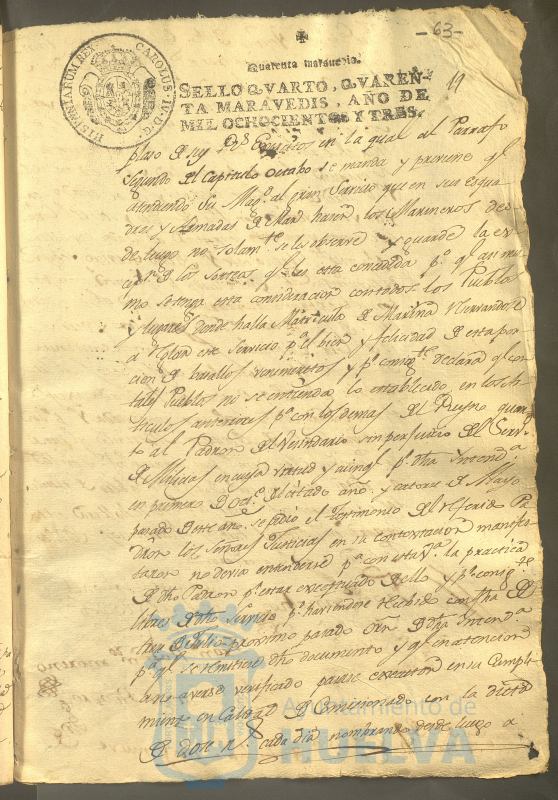 -63-
19
HISPANIARUM REX CAROLUS IV D. G.
Quarenta maravedis.
SELLO QVARTO, QVAREN-
TA MARAVEDIS, AÑO DE
MIL OCHOCIENTOS Y TRES.
en la qual al Parrafo
Segundo del Capitulo Octabo se manda y previene qe
atendiendo Su Magd al gran Servicio que en sus Esqua
dres y Armadas de Mar hacen los Marineros des
de luego no solamte se les observe y guarde la ex
de los Sorteos qe les esta concedida pr qe asi mis
mo se tenga esta consideracion con todos los Pueblos
y lugares donde halla Matricula de Marina
este Servicio pa el bien y felicidad de esta por
cion de basallos y pr declara qe con
tales Pueblos no se entienda lo establecido en los Ar
ticulos anteriores pa con los demas del Reyno quan
to al Padron del Vecindario sin perjuicio del Servo
de Milicias en cuya virtud y aunqe pr dha Intenda
en primero de del citado año y catorce de Mayo
pasado de este año se pidio el Testimonio del referido Pa
dron los Señores Justicias en su contextacion manifes
taron no devia entenderse pa con esta Va la practica
de dho Padron pr estar exceptuado de ello y pr consigte
libre de dho Servicio pr haviendose recibido con fha de
de Julio proximo pasado Orn de dha Intenda
pa qe se remitiese dho documento y qe en atencion
a no averse verificado pasase executor en su cumpli
miento en Calidad de Comisionado con la dieta
de doce rs cada dia nombrando desde luego a
Ayuntamiento de
HUELVA